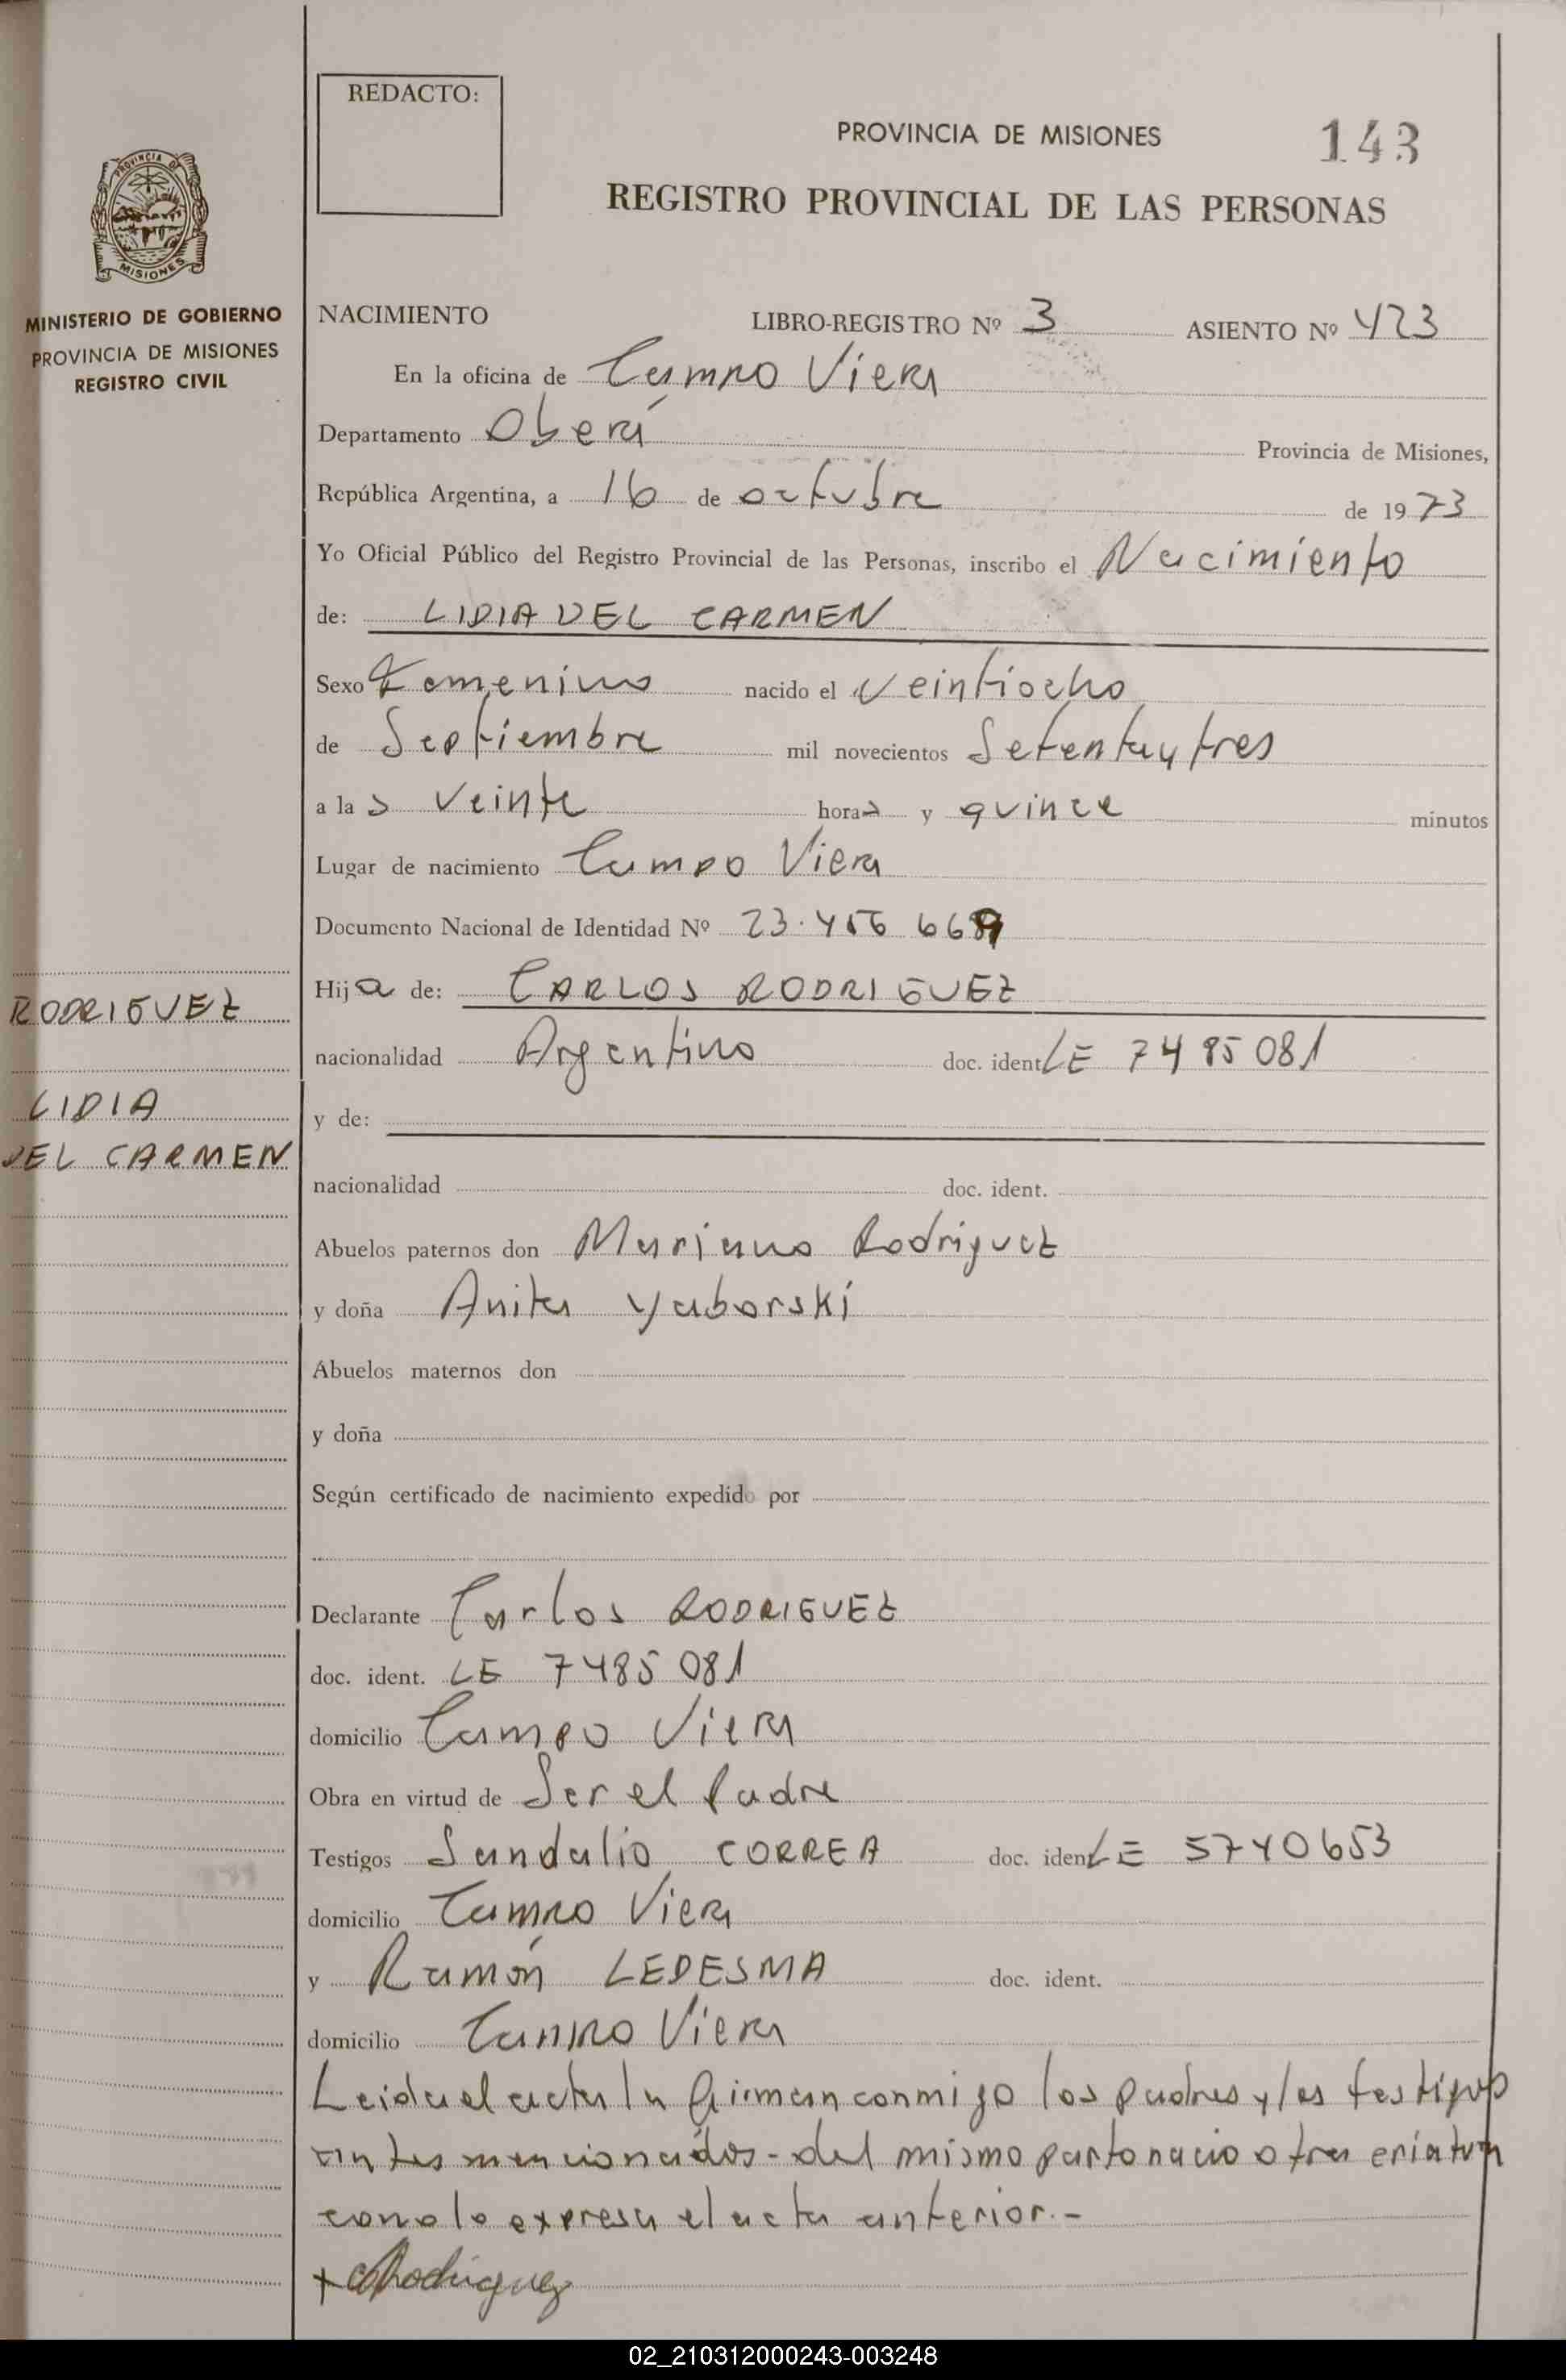 REDACTO:
PROVINCIA DE MISIONES
143
REGISTRO PROVINCIAL DE LAS PERSONAS
PROVINCIA DE
MISIONES
MINISTERIO DE GOBIERNO
PROVINCIA DE MISIONES
REGISTRO CIVIL
NACIMIENTO LIBRO-REGISTRO Nº 3 ASIENTO Nº 423
En la oficina de Campo Viera
Departamento Oberá Provincia de Misiones,
República Argentina, a 16 de octubre de 1973
Yo Oficial Público del Registro Provincial de las Personas, inscribo el Nacimiento
de: LIDIA DEL CARMEN
Sexo Femenino nacido el Veintiocho
de Septiembre mil novecientos Setentaytres
a las veinte horas y quince minutos
Lugar de nacimiento Campo Viera
Documento Nacional de Identidad Nº 23.456 669
Hija de: CARLOS RODRIGUEZ
nacionalidad Argentino doc. ident LE 7485081
y de:
nacionalidad doc. ident.
Abuelos paternos don Mariano Rodriguez
y doña Anita Yaborski
Abuelos maternos don
y doña
Según certificado de nacimiento expedido por
Declarante Carlos RODRIGUEZ
doc. ident. LE 7485081
domicilio Campo Viera
Obra en virtud de Ser el Padre
Testigos Sandalio CORREA doc. iden LE 5740653
domicilio Campo Viera
y Ramón LEDESMA doc. ident.
domicilio Campo Viera
Leida el acta la firman conmigo los padres y los testigos
antes mencionados - del mismo parto nacio otra criatura
como lo expresa el acta anterior.-
+ CRodriguez
RODRIGUEZ
LIDIA
DEL CARMEN
02_210312000243-003248